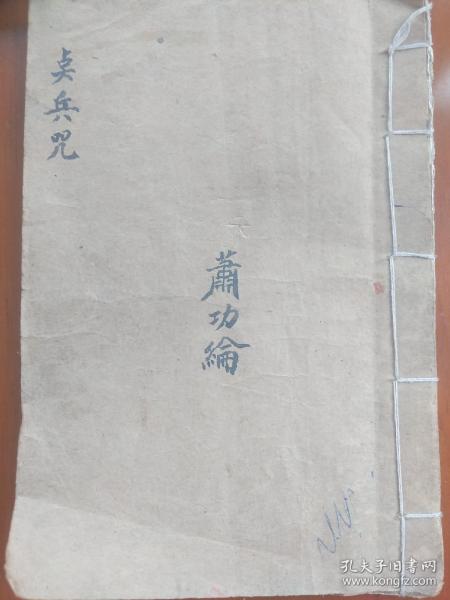 奌兵咒
蕭功綸
孔夫子旧书网
www.kongfz.com